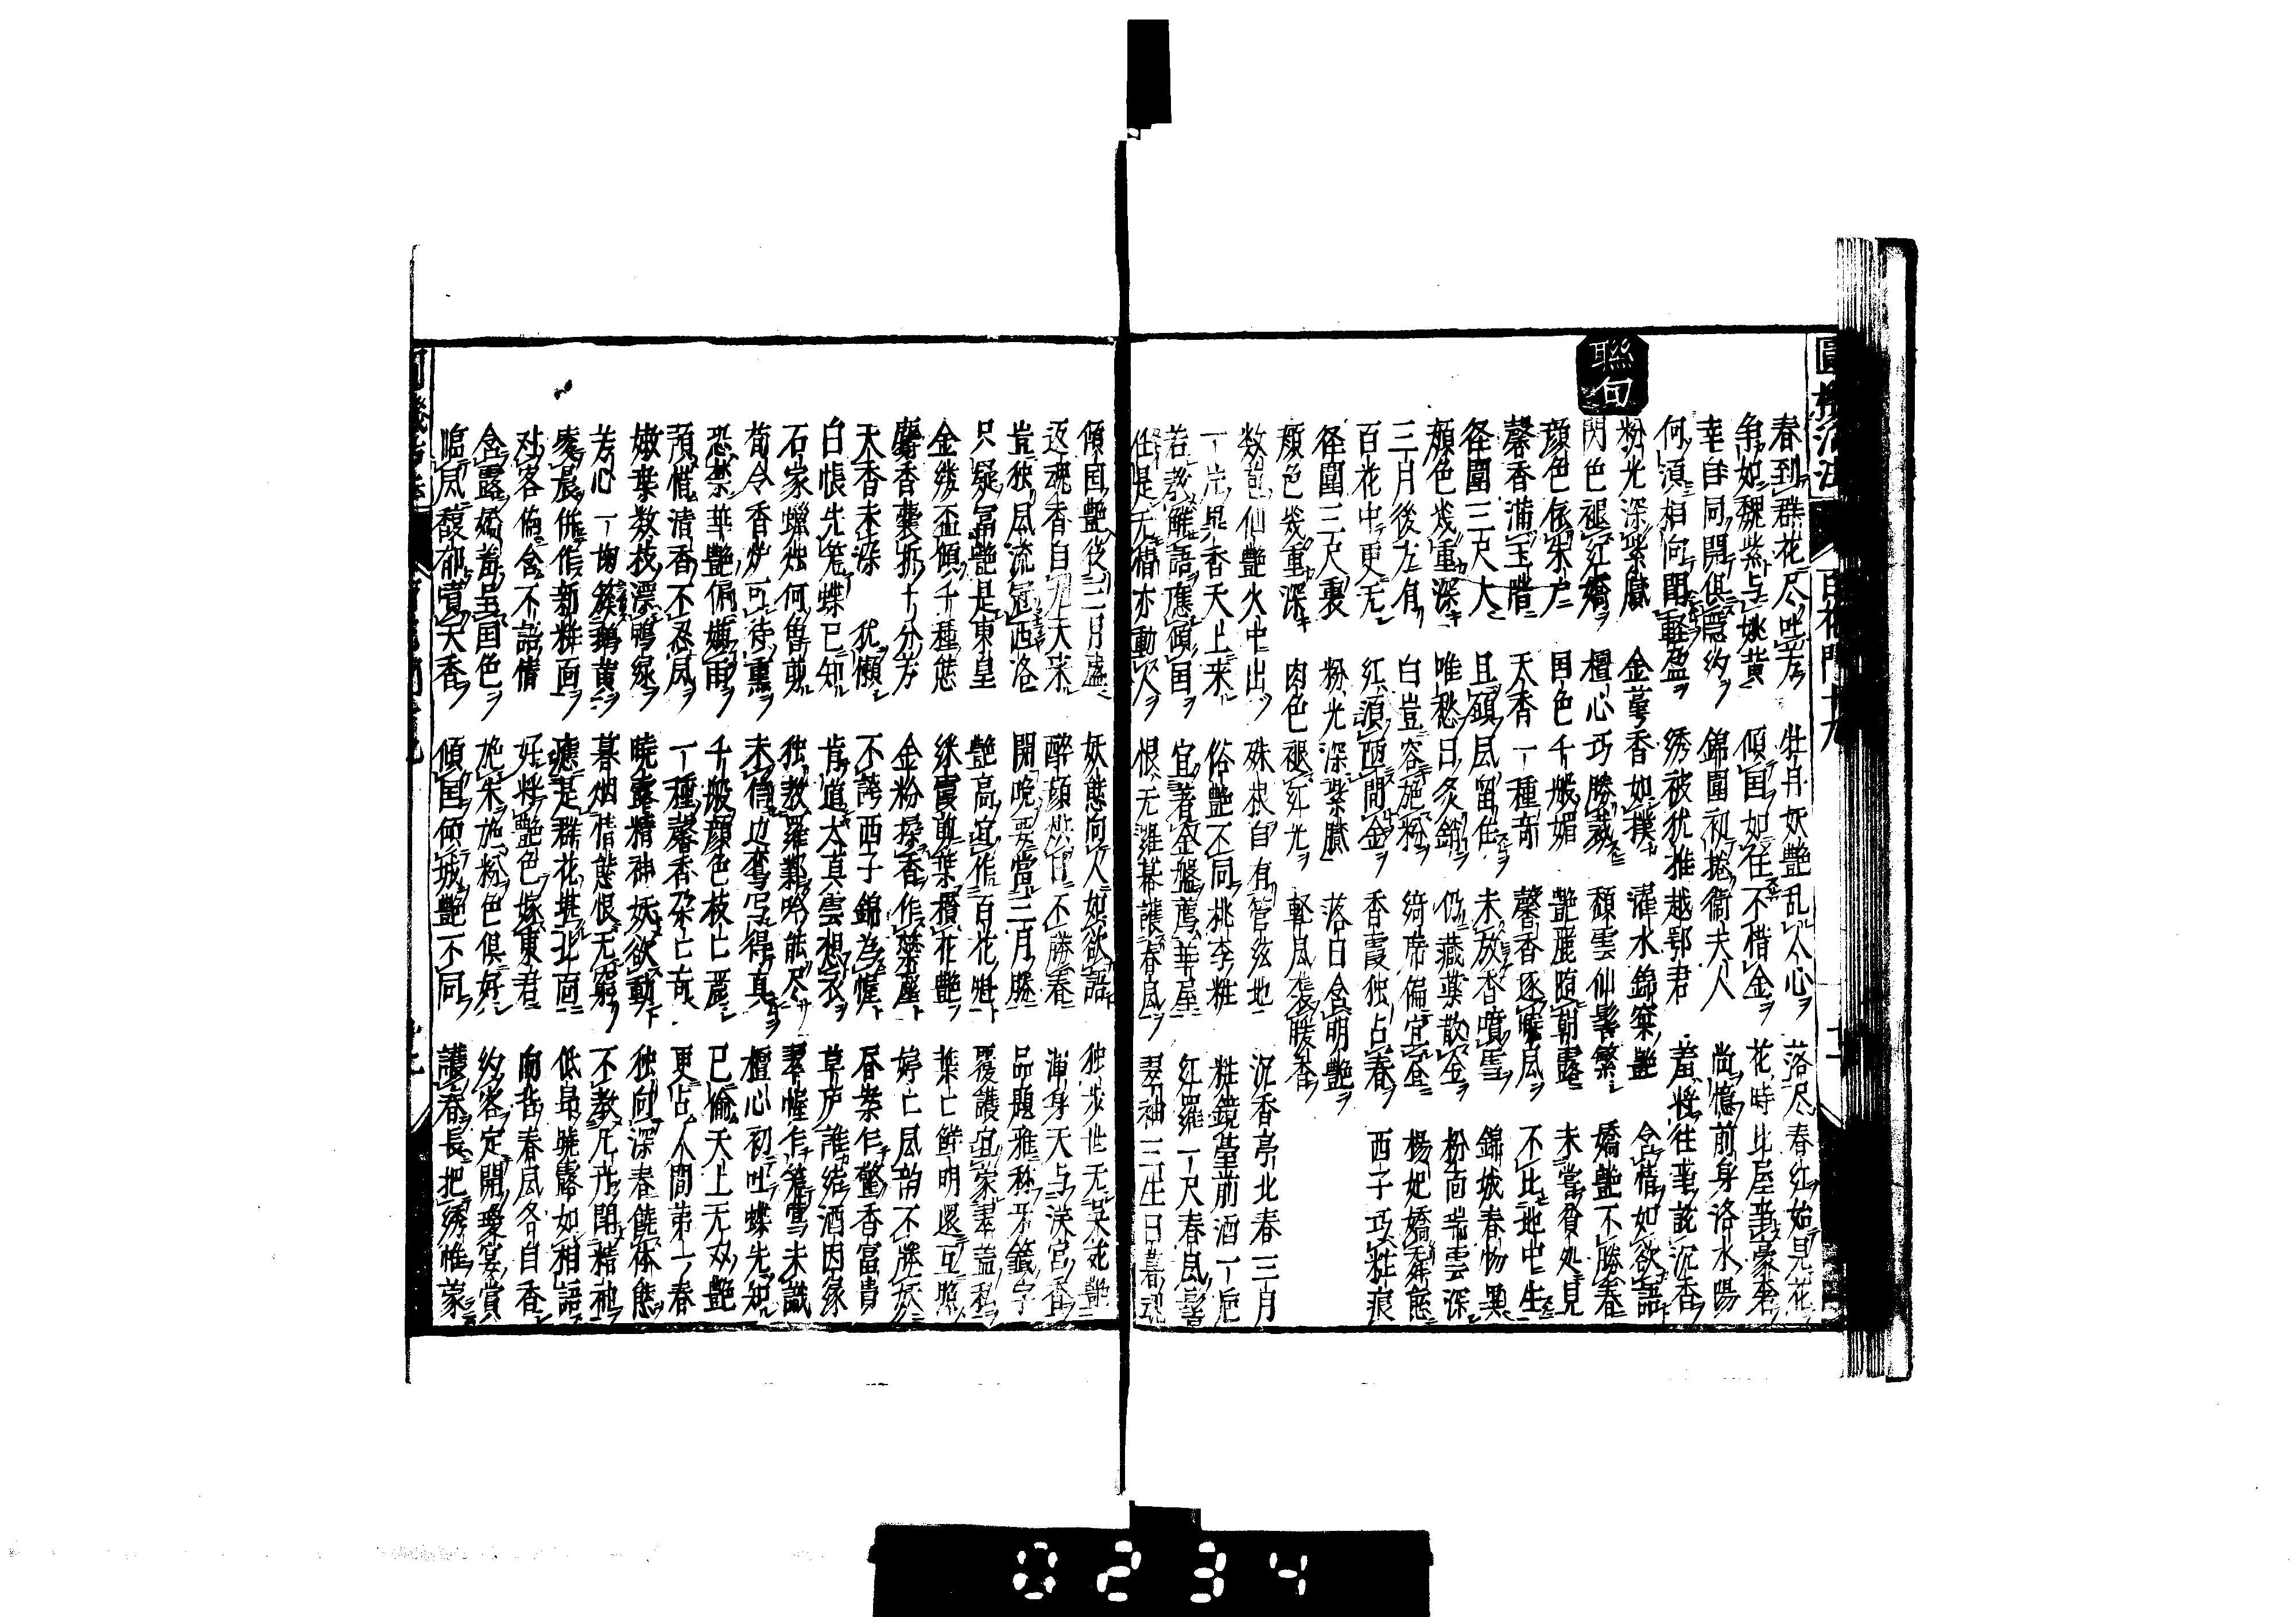 圓機活法 百花門十九
春到群花尽吐芳 牡丹妖艶乱人心 落尽春紅始見花
争如魏紫与姚黄 傾国如在不惜金 花時比屋事豪奢
幸自同開俱隱約 錦圍初捲衛夫人 尚憶前身洛水陽
何須相向鬪軽盈 綉被犹推越鄂君 羞将往事説沉香
聯句
粉光深紫膩 金蕚香如撲 濯水錦窠艶 含情如欲語
閃色褪紅嬌 檀心巧勝裁 頽雲仙髻繁 嬌艶不勝春
顔色依朱戸 国色千般媚 艶麗随朝露 未嘗貧処見
馨香満玉階 天香一種奇 馨香逐暖風 不比地中生
径圍三尺大 且願風留住 未放香噴雪 錦城春物異
顔色幾重深 唯愁日炙銷 仍藏蘂散金 粉面瑞雲深
三月後方有 白豈容施粉 綺席偏宜 楊妃嬌舞態
百花中更无 紅須 間金 香霞独占春 西子巧粧痕
径圍三尺裏 粉光深紫膩 落日含明艶
顔色幾重深 肉色褪紅光 軽風裛暖香
数苞仙艶火中出 殊根自有管弦地 沉香亭北春三月
一片異香天上来 俗艶不同桃李粧 粧鏡臺前酒一巵
若教解語應傾国 宜著金盤薦華屋 紅羅一尺春風髻
任是无情亦動人 恨无羅幕護春風 翠袖三生日暮魂
傾国艶後三月盛 妖態向人如欲語 独歩世无吴苑艶
返魂香自九天来 醉顔 日不勝春 渾身天与漢宮香
豈独風流冠西洛 開晩要當三月勝 品題雅称牙籤字
只疑富艶是東皇 艶高宜作百花 覆護宜蒙翠盖私
金盞盃傾千種態 綵霞剪葉攅花艶 葉亡鮮明還互照
麝香囊拆十分芳 金粉揉香作蘂 婷亡風韵不勝妖
天香未染 犹懶 不誇西子錦為幄 昼 乍驚香富貴
白悵先 蝶已知 肯道太真雲想衣 草戸誰 酒因縁
石家蠟燭何曽剪 独教羅鄴吟能尽 翠幄乍 未識
荀令香炉可待熏 未倩边鸞写得真 檀心初吐蝶先知
恐禁華艶偏嫌雨 千般顔色枝亡 已偷天上无双艶
預惜清香不忍風 一種馨香朶亡奇 更占人間第一春
嫩葉数枝漂鴨緑 暁露精神妖欲動 独向深春饒体態
芳心一掬簇鵝黄 暮烟情態恨无窮 不教凡卉闘精神
凌晨併作新粧面 應是群花 北面 低昂暁露如相語
对客偏含不語情 好将艶色嫁東君 向背春風各自香
含露嬌 呈国色 施朱施粉色俱好 約客定開 宴賞
臨風馥郁噴天香 傾国傾城艶不同 護春長把綉帷蒙
0234